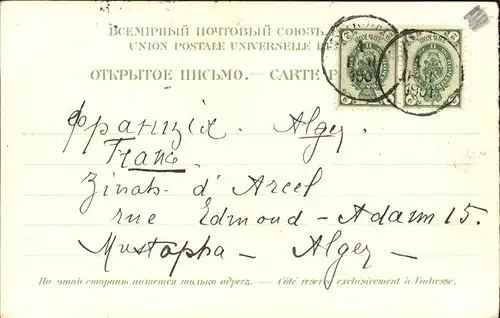 ВСЕМІРНЫЙ ПОЧТОВЫЙ СОЮЗЪ.
UNION POSTALE UNIVERSELLE
ОТКРЫТОЕ ПИСЬМО. — CARTE
Франція. Alger
Franc.
d'Arcel
rue Edmond - Adam 15.
Mustapha - Alger -
На этой сторонѣ пишется только адресъ. — Côté réservé exclusivement à l'adresse.